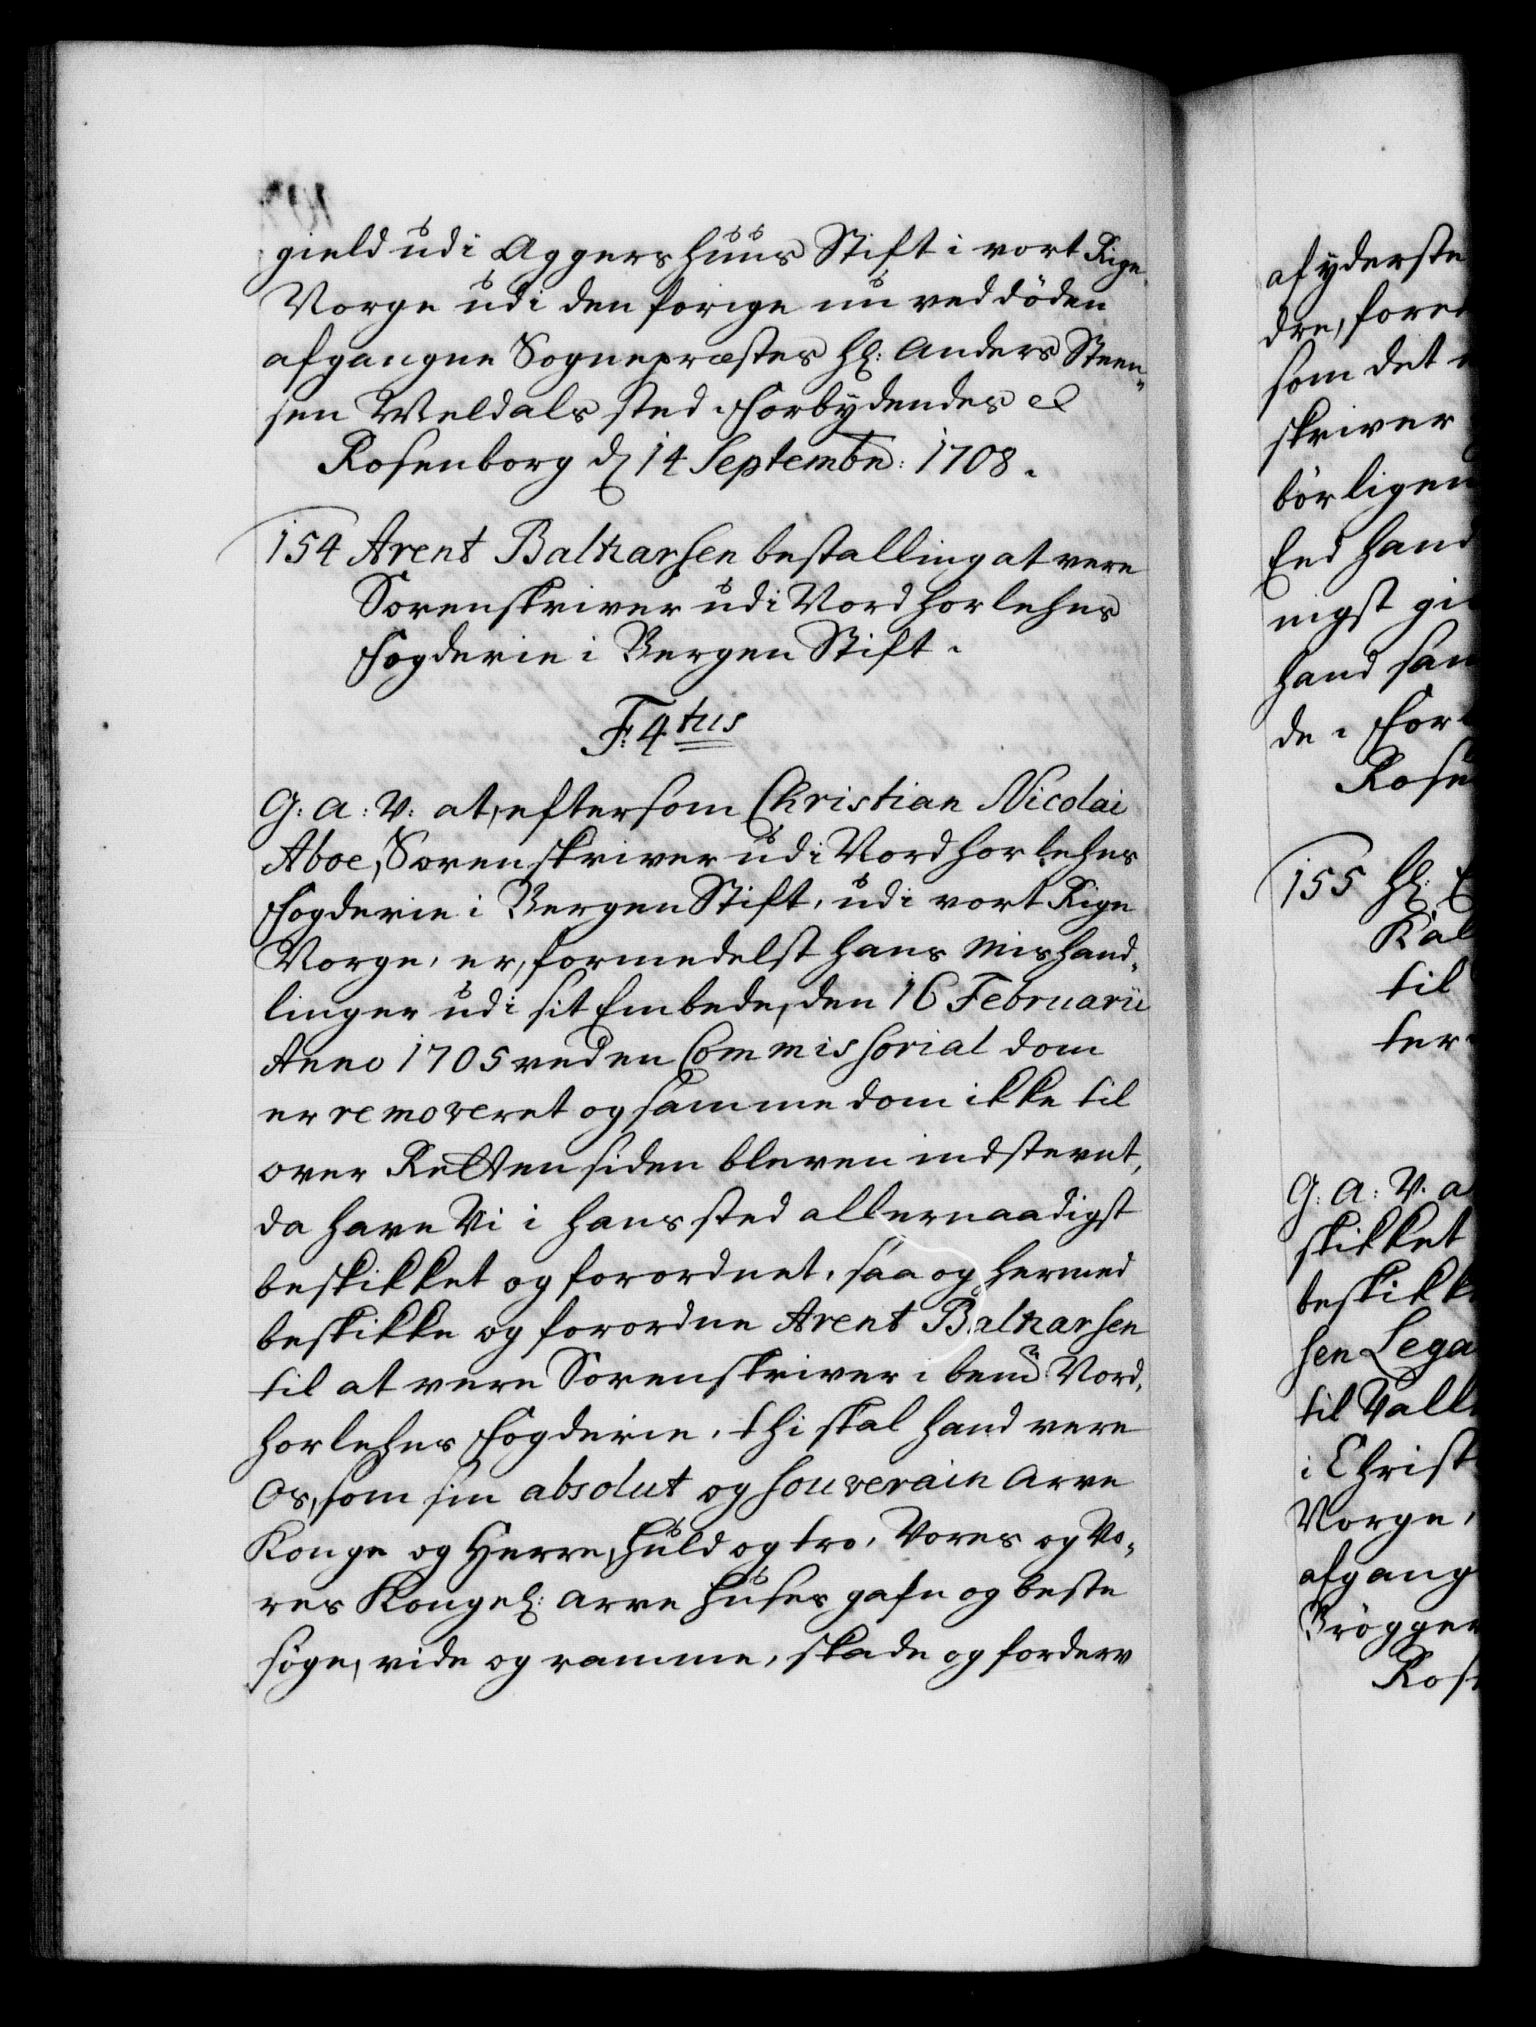 gield udi Aggershuus Stift i vort Rige
Norge udi den forige nu ved döden
afgangne Sognepræstes Hl: Anders Steen„
sen Meldals sted. Forbydendes &
Rosenborg d 14 Septembr: 1708.
154 Arent Baltzarsen bestalling at vere
Sorenskriver udi Nordhorlehns
Fogderie i Bergen Stift.
F: 4tus
G: A: V: at, eftersom Christian Nicolai
Aboe, Sorenskriver udi Nordhorlehns
Fogderie i Bergen Stift, udi vort Rige
Norge, er, formedelst hans Mishand„
linger udi sit Embede, den 16 Februarii
Anno 1705 ved en Commissorial dom
er removeret og samme dom ikke til
over Retten siden bleven indstevnt,
da have Vi i hans sted allernaadigst
beskikket og forordnet, saa og hermed
beskikke og forordne Arent Baltzarsen
til at vere Sorenskriver i bemte: Nord„
horlehns Fogderie, thi skal hand vere
Os, som sin absolut og souverain Arve
Konge og Herre, huld og tro, Vores og Vo„
res Kongel: Arve Huses gafn og beste
söge, vide og ramme, skade og forderv
af yderste
dre, fore
som det
skriver
börligen
End hand
nigst gi
hand sam
de. For
Rose
155 Hl:
Kal
til
ter
G: A: V. a
skikket
beskikk
sen Lega
til Vall
i Christ
Norge,
afgang
Brögger
Ros